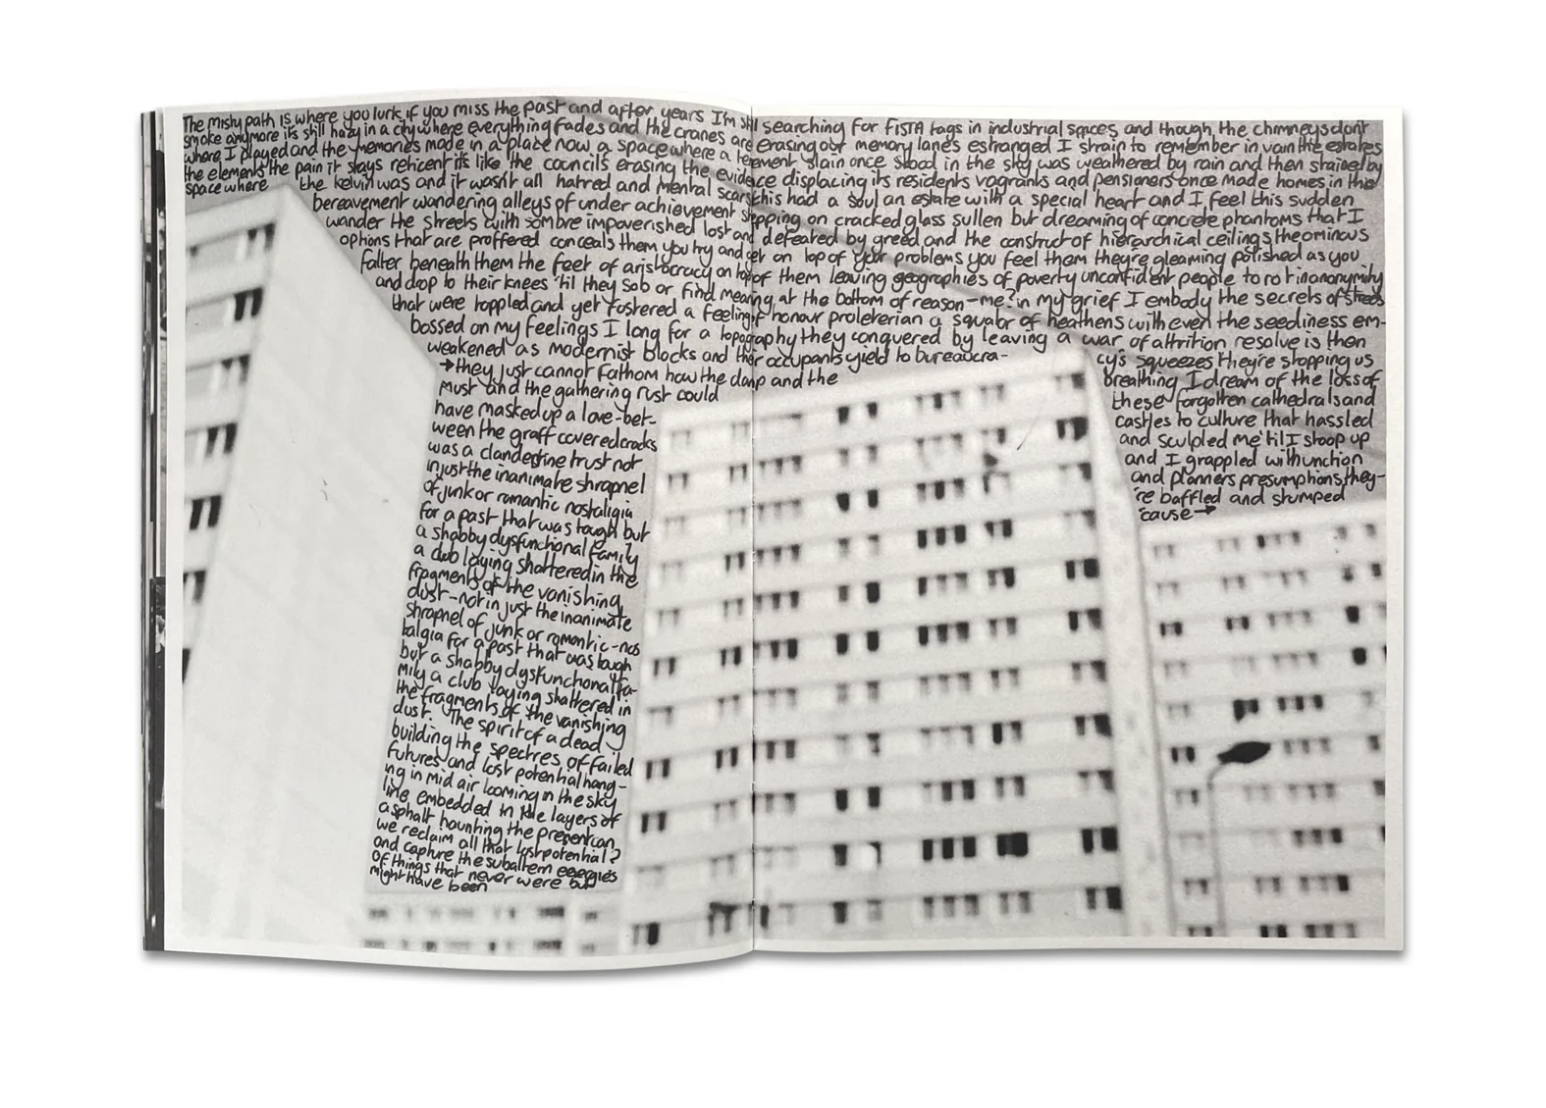 The misty path is where you lurk if you miss the past and after years I'm still searching for FISTA tags in industrial spaces and though the chimneys don't
smoke anymore it's still hazy in a city where everything fades and the cranes are erasing our memory lanes estranged I strain to remember in vain the estates
where I played and the memories made in a place now a space where a tenement slain once stood in the sky was weathered by rain and then stained by
the elements the pain it stays reticent it's like the councils erasing the evidence displacing its residents vagrants and pensioners once made homes in the
space where the kelvin was and it wasn't all hatred and mental scars this had a soul an estate with a special heart and I feel this sudden
bereavement wandering alleys of under achievement stepping on cracked glass sullen but dreaming of concrete phantoms that I
wander the streets with sombre impoverished lost and defeated by greed and the construct of hierarchical ceilings the ominous
options that are proffered conceals them you try and get on top of your problems you feel them they're gleaming polished as you
falter beneath them the feet of aristocracy on top of them leaving geographies of poverty unconfident people to rot in anonymity
and drop to their knees 'til they sob or find meaning at the bottom of reason-me? in my grief I embody the secrets of
that were toppled and yet fostered a feeling of honour proleterian a squalor of heathens with even the seediness em-
bossed on my feelings I long for a topography they conquered by leaving a war of attrition resolve is then
weakened as modernist blocks and their occupants yield to bureaucra-
cy's squeezes they're stopping us
breathing I dream of the loss of
these forgotten cathedrals and
castles to culture that hassled
and sculpted me 'til I stoop up
and I grappled with unction
and planners presumptions they-
're baffled and stumped
'cause →
→ they just cannot fathom how the damp and the
must and the gathering rust could
have masked up a love-bet-
ween the graff covered cracks
was a clandestine trust not
in just the inanimate shrapnel
of junk or romantic nostaligia
for a past that was tough but
a shabby dysfunctional family
a club laying shattered in the
fragments of the vanishing
dust-not in just the inanimate
shrapnel of junk or romantic-nos
talgia for a past that was tough
but a shabby dysfunctional fa-
mily a club laying shattered in
the fragments of the vanishing
dust. The spirit of a dead
building the spectres of failed
futures and lost potential hang-
ing in mid air looming in the sky
line embedded in the layers of
asphalt haunting the present can
we reclaim all that lost potential?
and capture the subaltern energies
of things that never were but
might have been